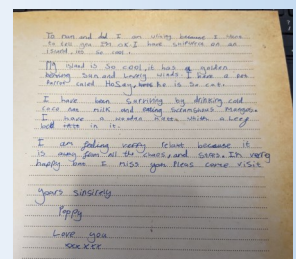 To mum and dad I am writing because I want
to tell you I'm ok. I have shipwreck on an
island, its so cool.
My island is so cool, it has a golden
burning sun and lovely winds. I have a pet
Parrot called HoSay, he is so cat.
I have been surviving by drinking cold
coco nut milk and eating scrumshous mangos.
I have a wooden hutt. whith a leef
bed in it.
I am feeling verrry relaxt because it
is away from all the chaos, and stres. Im verry
happy but I miss you Pleas come visit
yours sinsirely
Poppy
Love you
xxxxxx